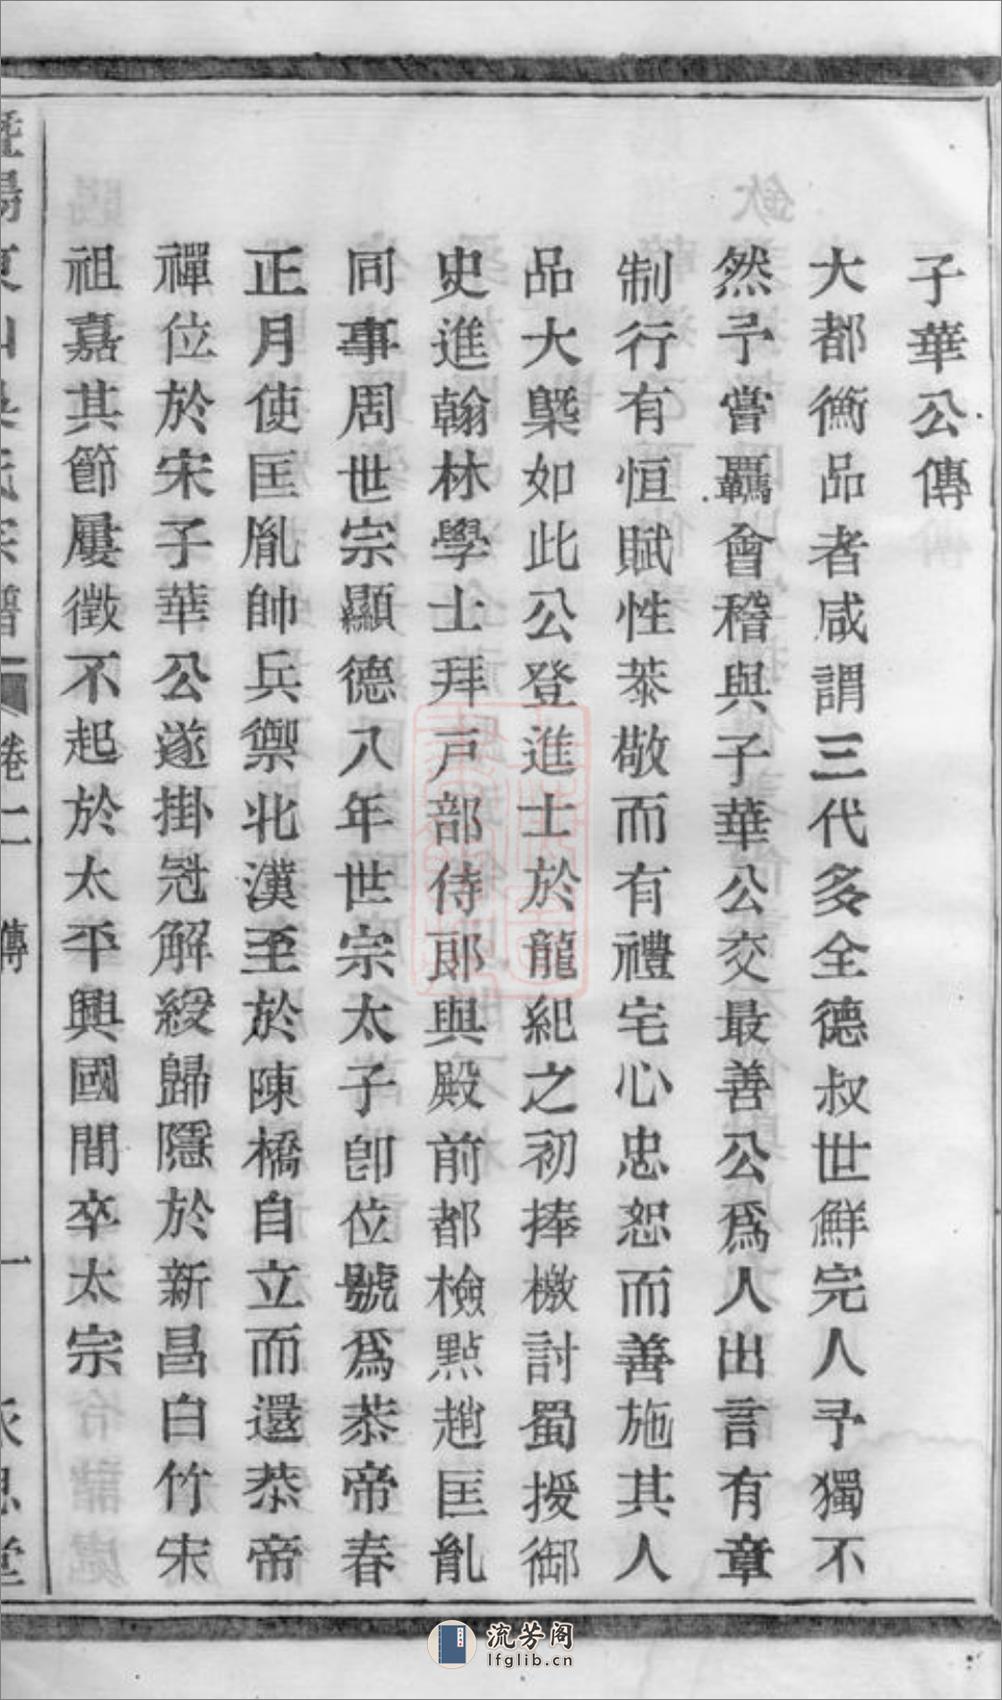 子華公傳
大都衡品者咸謂三代多全德叔世鮮完人予獨不
然予嘗羈會稽與子華公交最善公爲人出言有章
制行有恒賦性恭敬而有禮宅心忠恕而善施其人
品大槩如此公登進士於龍紀之初捧檄討蜀授御
史進翰林學士拜戸部侍郞與殿前都檢㸃趙匡胤
同事周世宗顯德八年世宗太子卽位號爲恭帝春
正月使匡胤帥兵禦北漢至於陳橋自立而還恭帝
禪位於宋子華公遂掛冠解綬歸隱於新昌白竹宋
祖嘉其節屢徵不起於太平興國間卒太宗
卷二
傳
一
流芳阁
lfglib.cn